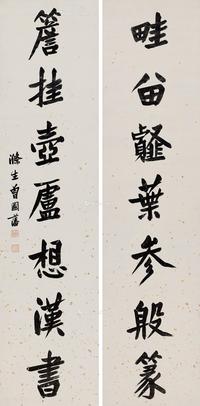 畦留韰葉參殷篆
簷挂壺盧想漢書
滌生曾國藩